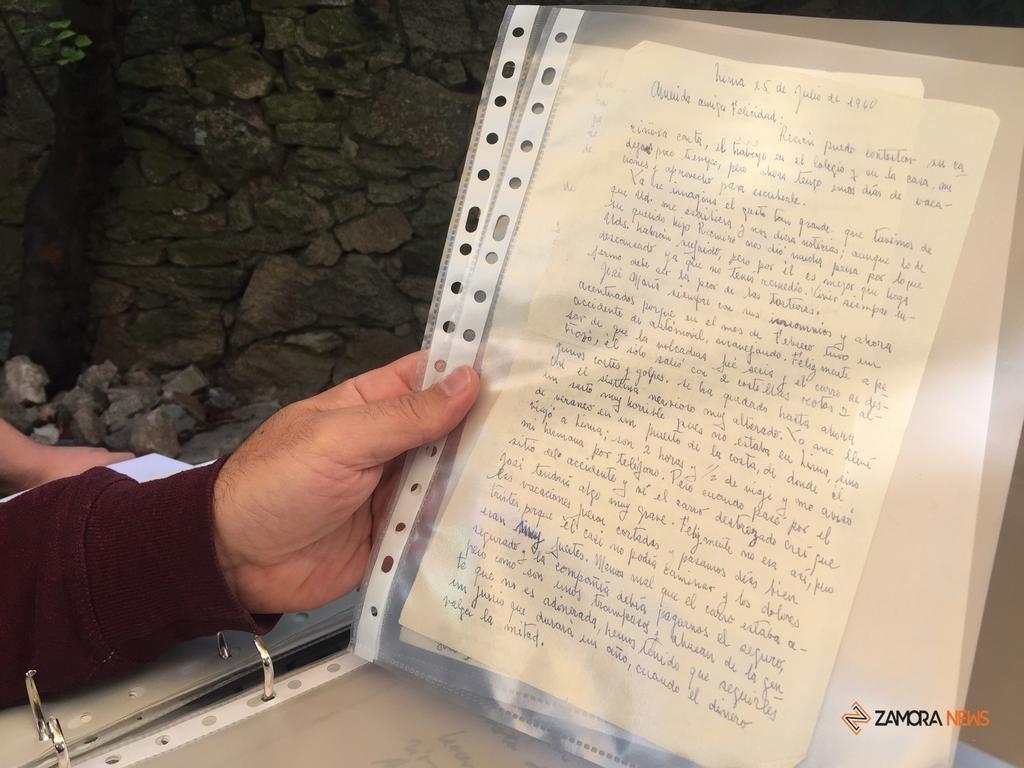 Lima 25 de Julio de 1960
Querida amiga Felicidad:
Recién puedo contestar su ca-
riñosa carta, el trabajo en el colegio y en la casa, me
dejan poco tiempo, pero ahora tengo unos días de vaca-
ciones y aprovecho para escribirle.
Ya se imagina el gusto tan grande que tuvimos de
que Ud. me escribiera y nos diera noticias; aunque lo de
su querido hijo Ramiro nos dió mucha pena por lo que
Uds. habrán sufrido, pero por él es mejor que haya
descansado ya que no tenía remedio. Vivir siempre en-
fermo debe ser la peor de las torturas.
José María siempre con sus insomnios y ahora
acentuados porque en el mes de Febrero tuvo un
accidente de automóvil, manejando. Felizmente a pe-
sar de que la volcadura fué seria y el carro se des-
trozó, él sólo salió con 2 costillas rotas y al-
gunos cortes y golpes. Se ha quedado hasta ahora
con el sistema nervioso muy alterado. Yo me llevé
un susto muy horrible pues no estaba en Lima, sino
de veraneo en un puerto de la costa, de donde él
a Lima; son 2 horas y ½ de viaje y me avisó
mi hermana por teléfono. Pero cuando pasé por el
sitio del accidente y vi el carro destrozado creí que
José tendría algo muy grave. Felizmente no era así, pero
las vacaciones fueron cortadas y pasamos días bien
tristes porque él casi no podía caminar y los dolores
eran muy fuertes. Menos mal que el carro estaba a-
segurado y la compañía debía pagarnos el seguro,
pero como son unos tramposos y abusan de la gen-
te que no es adinerada, hemos tenido que seguirles
un juicio que durará un año, cuando el dinero
valga la mitad.
ZAMORA NEWS